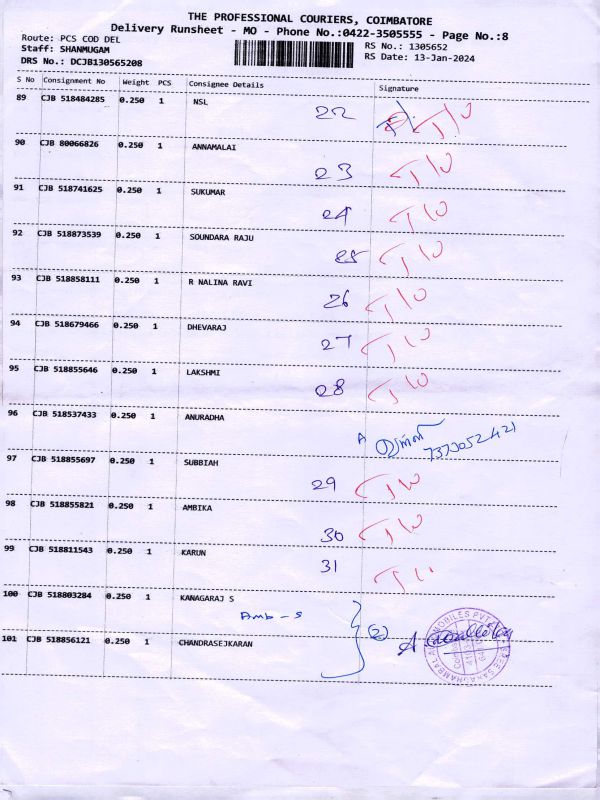 THE PROFESSIONAL COURIERS, COIMBATORE
Delivery Runsheet - MO - Phone No.:0422-3505555 - Page No.:8
Route: PCS COD DEL
Staff: SHANMUGAM
DRS No.: DCJB130565208
RS No.: 1305652
RS Date: 13-Jan-2024
S No Consignment No Weight PCS Consignee Details Signature
89 CJB 518484285 0.250 1 NSL 22 T/o
90 CJB 80066826 0.250 1 ANNAMALAI 23 T/o
91 CJB 518741625 0.250 1 SUKUMAR 24 T/o
92 CJB 518873539 0.250 1 SOUNDARA RAJU 25 T/o
93 CJB 518858111 0.250 1 R NALINA RAVI 26 T/o
94 CJB 518679466 0.250 1 DHEVARAJ 27 T/o
95 CJB 518855646 0.250 1 LAKSHMI 28 T/o
96 CJB 518537433 0.250 1 ANURADHA
97 CJB 518855697 0.250 1 SUBBIAH 29 T/o
98 CJB 518855821 0.250 1 AMBIKA 30 T/o
99 CJB 518811543 0.250 1 KARUN 31
100 CJB 518803284 0.250 1 KANAGARAJ S
Amb - S (2)
101 CJB 518856121 0.250 1 CHANDRASEJKARAN